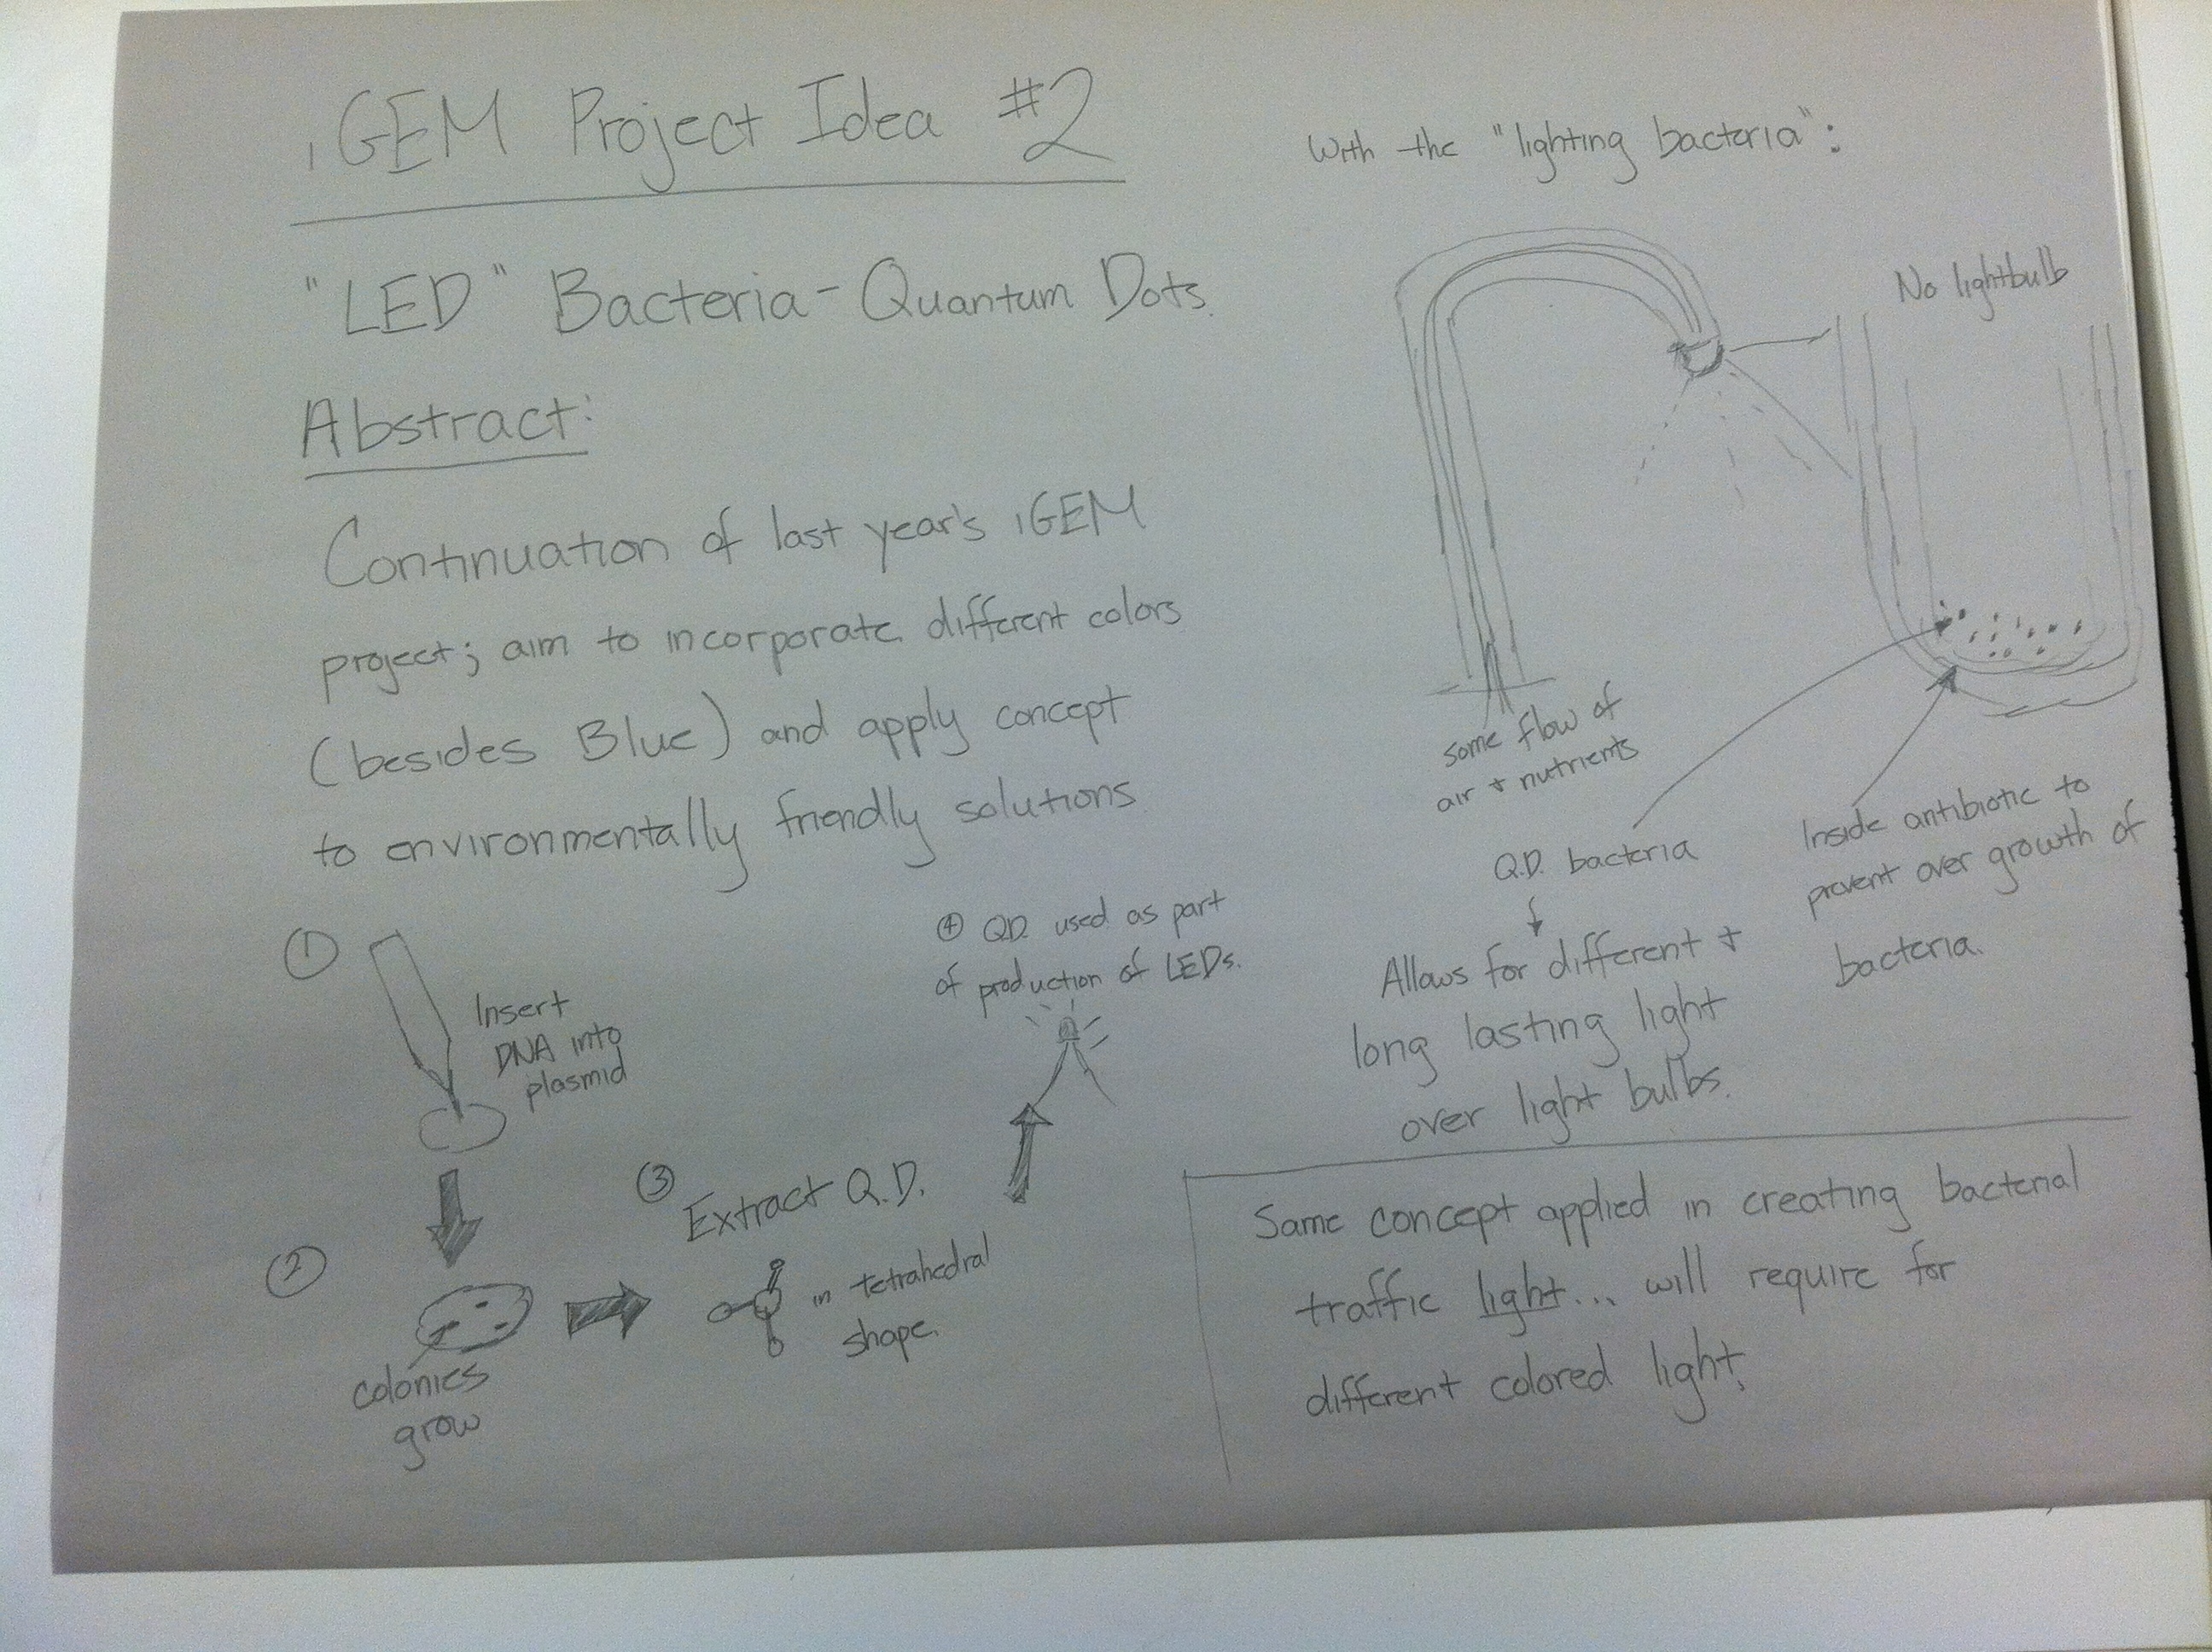 iGEM Project Idea #2
"LED" Bacteria - Quantum Dots.
Abstract:
Continuation of last year's iGEM
project; aim to incorporate different colors
(besides Blue) and apply concept
to environmentally friendly solutions.
①
Insert
DNA into
plasmid
②
colonies
grow
③
Extract Q.D.
in tetrahedral
shape.
④ Q.D. used as part
of production of LEDs.
With the "lighting bacteria":
No lightbulb
some flow of
air + nutrients
Q.D. bacteria
Allows for different +
long lasting light
over light bulbs.
Inside antibiotic to
prevent over growth of
bacteria.
Same concept applied in creating bacterial
traffic light... will require for
different colored light.